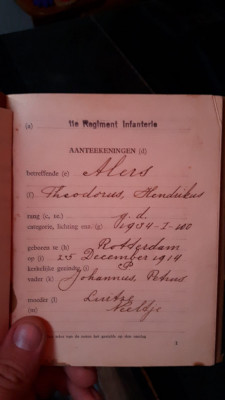 (a) 11e Regiment Infanterie
AANTEEKENINGEN (d)
betreffende (e) Alers
(f) Theodorus, Hendrikus
rang (c, ee.) g.d.
categorie, lichting enz. (g) 1934-I-180
geboren te (h) Rotterdam
op (i) 25 December 1914
kerkelijke gezindte (j) P
vader (k) Johannus, Petrus
moeder (l)
(m) Neeltje
1